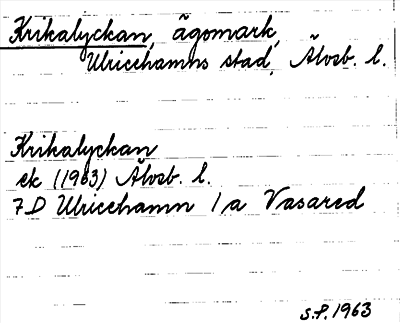 Krikalyckan, ägomark,
Ulricehamns stad, Älvsb. l.
Krikalyckan
ek (1963) Älvsb. l.
7D Ulricehamn 1,a Vasared
S.P. 1963